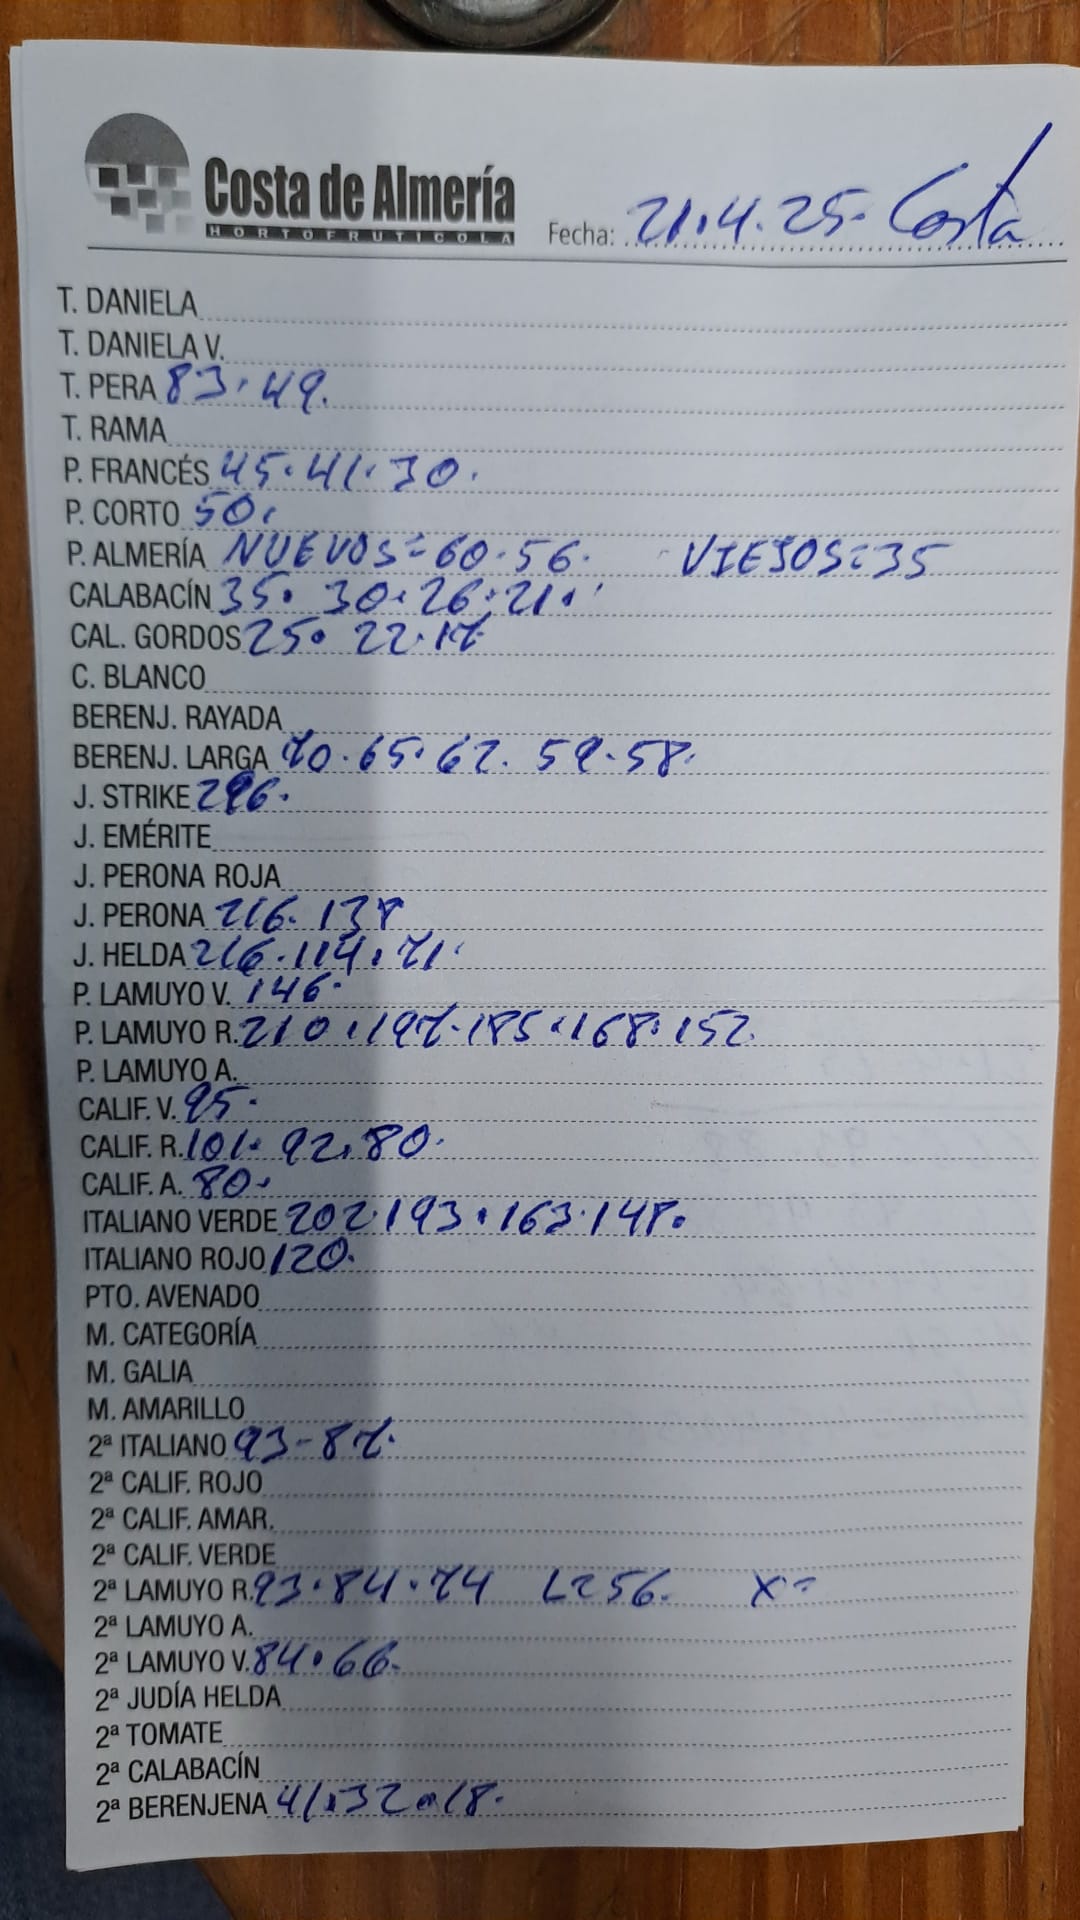 Costa de Almería
HORTOFRUTICOLA
Fecha: 21.4.25. Costa
T. DANIELA
T. DANIELA V.
T. PERA 83.49.
T. RAMA
P. FRANCÉS 45.41.30.
P. CORTO 50.
P. ALMERÍA NUEVOS=60.56. VIEJOS=35
CALABACÍN 35. 30.26.21.
CAL. GORDOS 25. 22.17
C. BLANCO
BERENJ. RAYADA
BERENJ. LARGA 70.65.62. 59.58.
J. STRIKE 296.
J. EMÉRITE
J. PERONA ROJA
J. PERONA 216. 138
J. HELDA 216.114.71.
P. LAMUYO V. 146.
P. LAMUYO R. 210.197.185.168.152.
P. LAMUYO A.
CALIF. V. 95.
CALIF. R. 101. 92.80.
CALIF. A. 80.
ITALIANO VERDE 202.193.163.148.
ITALIANO ROJO 120.
PTO. AVENADO
M. CATEGORÍA
M. GALIA
M. AMARILLO
2ª ITALIANO 93-87.
2ª CALIF. ROJO
2ª CALIF. AMAR.
2ª CALIF. VERDE
2ª LAMUYO R. 93.84.74 L=56. X=
2ª LAMUYO A.
2ª LAMUYO V. 84.66.
2ª JUDÍA HELDA
2ª TOMATE
2ª CALABACÍN
2ª BERENJENA 41.32.18.